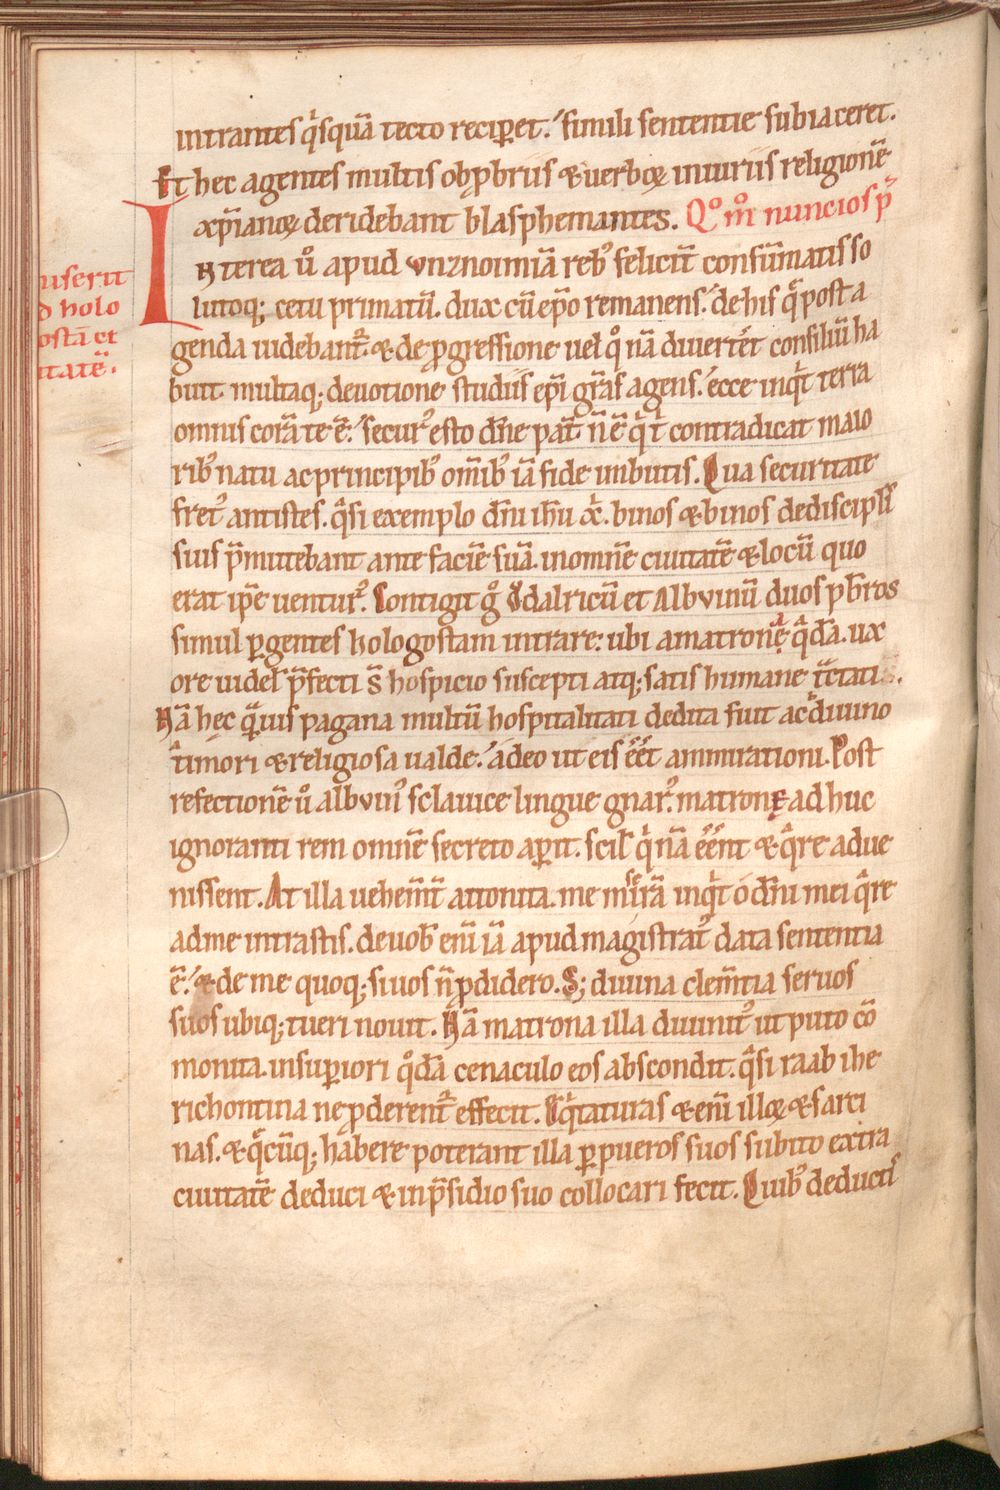 intrantes q̇squā tecto reciꝑet. simili sententie subiaceret.
Et hec agentes multis obꝓbriis &uerboꝝ iniuriis religionē
xp̄ianoꝝ deridebant blasphemantes. Qͦ mͦ nuncios p̄
Interea ů apud vnznoimiā reb᷒ felicit̄ consūmatis so
miserit
lutoq; cetu primatū. dux cū ep̄o remanens. de his q̄ post a
d holo
genda uidebant᷑. & de ꝓgressione uel qͦ nā diuertēt consiliū ha
ostā ct
buit. multaq; deuotione studiis ep̄i gr̄as agens. ecce inqͥt terra
itatē.
omnis corā te ē. secur᷒ esto dn̄e pat̄. n̄ ē qͥ t̄ contradicat maio
rib᷒ natu ac principib᷒ om̄ib᷒ iā fide imbutis. Qua securitate
fret᷒ antistes. q̄si exemplo dn̄i ih̄u xp̄i. binos &binos dediscipl̄i
suis p̄mittebant ante faciē suā. inomnē ciuitatē &locū quo
erat ip̄e uentur᷒. Contigit gͦ Vdalricū et Albvinū duos pr̄bros
simul ꝑgentes hologostam intrare: ubi amatronę q̄dā. ux
ore uidel̄ p̄fecti s̄ hospicio suscepti atq; satis humane t̄ctati s̄.
Nā hęc q̄uis pagana multū hospitalitati dedita fuit ac diuino
timori &religiosa ualde. adeo ut eis eēt ammirationi. Post
refectionē ů albvin᷒ sclauice lingue gnar᷒. matronę adhuc
ignoranti rem omnē secreto aꝑit. scil̄ qͥ nā eēnt &q̄re adue
nissent. At illa uehem̄t̄ attonita. me mis̄erā inqͥt o dn̄i mei q̄re
ad me intrastis. de uob᷒ enī iā apud magistrat᷒ data sententia
ē. & de me quoq; si uos n̄ ꝓdidero. S; diuina clem̄tia seruos
suos ubiq; tueri nouit. Nā matrona illa diuinit᷒ ut puto cō
monita. insuꝑiori qͦdā cenaculo eos abscondit. q̄si raab ihe
richontina ne ꝓderent᷑ effecit. Eqͥtaturas & enī illoꝝ &sarci
nas. &q̄cūq; habere poterant illa ꝑ pueros suos subito extra
ciuitatē deduci & inp̄sidio suo collocari fecit. Quib᷒ deductis